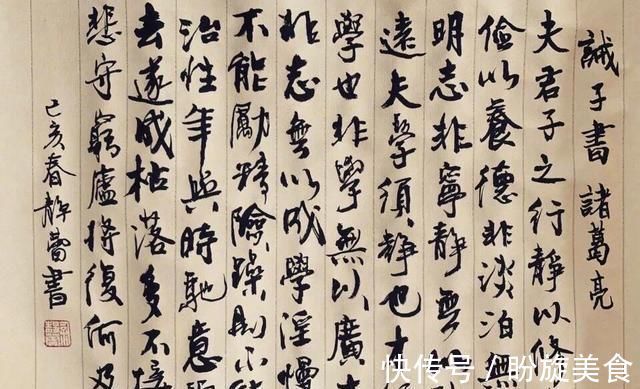 誡子書 諸葛亮
夫君子之行静以修
儉以養德非淡泊無
明志非寧静無
遠夫學須静也才
學也非學無以廣
非志無以成學淫慢
不能勵精險躁則不
治性年與時馳意
去遂成枯落多不接
悲守窮廬將復何及
己亥春静蕾書
快传号 / 盼旋美食